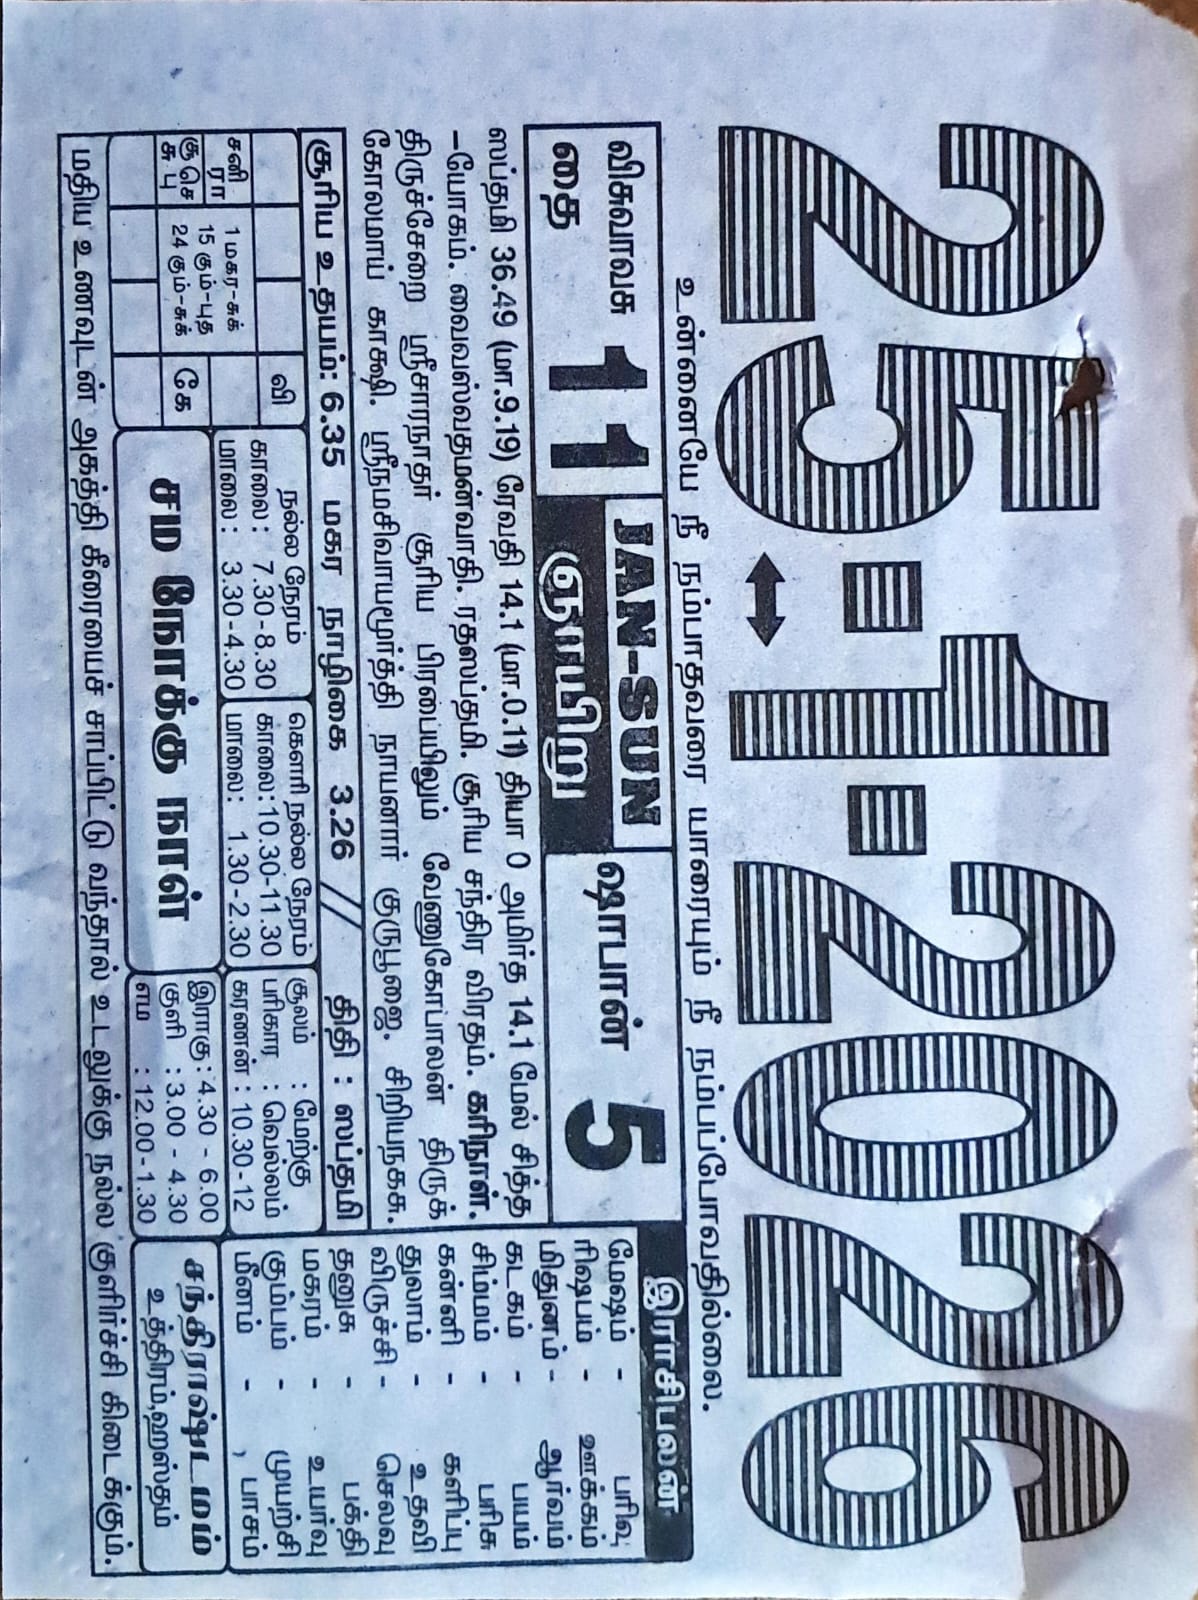 25-1-2026
உன்னையே நீ நம்பாதவரை யாரையும் நீ நம்பப்போவதில்லை.
விசுவாவசு
தை 11
JAN-SUN
ஞாயிறு
ஷாபான் 5
ஸப்தமி 36.49 (மா.9.19) ரேவதி 14.1 (மா.0.11) தியா 0 அமிர்த 14.1 மேல் சித்த
-யோகம். வைவஸ்வதமன்வாதி. ரதஸப்தமி. சூரிய சந்திர விரதம். கரிநாள்.
திருச்சேறை ஸ்ரீசாரநாதர் சூரிய பிரபையிலும் வேணுகோபாலன் திருக்
கோலமாய் காக்ஷி. ஸ்ரீநமசிவாயமூர்த்தி நாயனார் குருபூஜை. சிறியநகசு.
சூரிய உதயம்: 6.35 மகர நாழிகை 3.26 // திதி : ஸப்தமி
வி
சனி
ரா
சூ செ
சு பு
1 மகர-சுக்
15 கும்-புத
24 கும்-சுக்
கே
நல்ல நேரம்
காலை: 7.30-8.30
மாலை: 3.30-4.30
கௌரி நல்ல நேரம்
காலை: 10.30-11.30
மாலை: 1.30-2.30
சூலம் : மேற்கு
பரிகார : வெல்லம்
கரணன் : 10.30-12
சம நோக்கு நாள்
இராகு: 4.30 - 6.00
குளி : 3.00 - 4.30
எம : 12.00-1.30
இராசிபலன்
மேஷம் - பரிவு
ரிஷபம் - ஊக்கம்
மிதுனம் - ஆர்வம்
கடகம் - பயம்
சிம்மம் - பரிசு
கன்னி - களிப்பு
துலாம் - உதவி
விருச்சி - செலவு
தனுசு - பக்தி
மகரம் - உயர்வு
கும்பம் - முயற்சி
மீனம் - பாசம்
சந்திராஷ்டமம்
உத்திரம்,ஹஸ்தம்
மதிய உணவுடன் அகத்தி கீரையைச் சாப்பிட்டு வந்தால் உடலுக்கு நல்ல குளிர்ச்சி கிடைக்கும்.